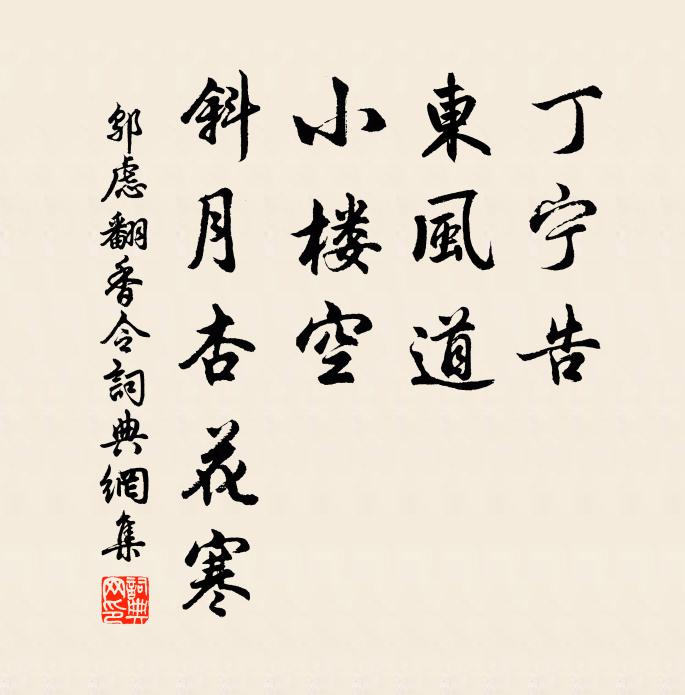 丁宁告
東風道
小楼空
斜月杏花寒
鄔虑翻香令詞典網集
詞典
网印